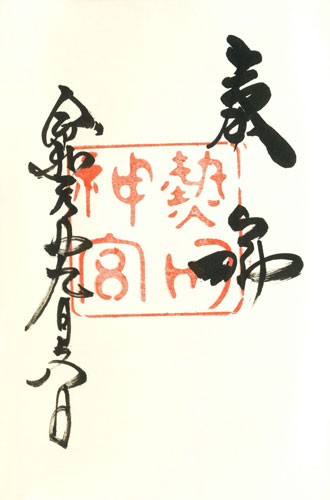 奉拝
熱田
神宮
令和元年九月八日